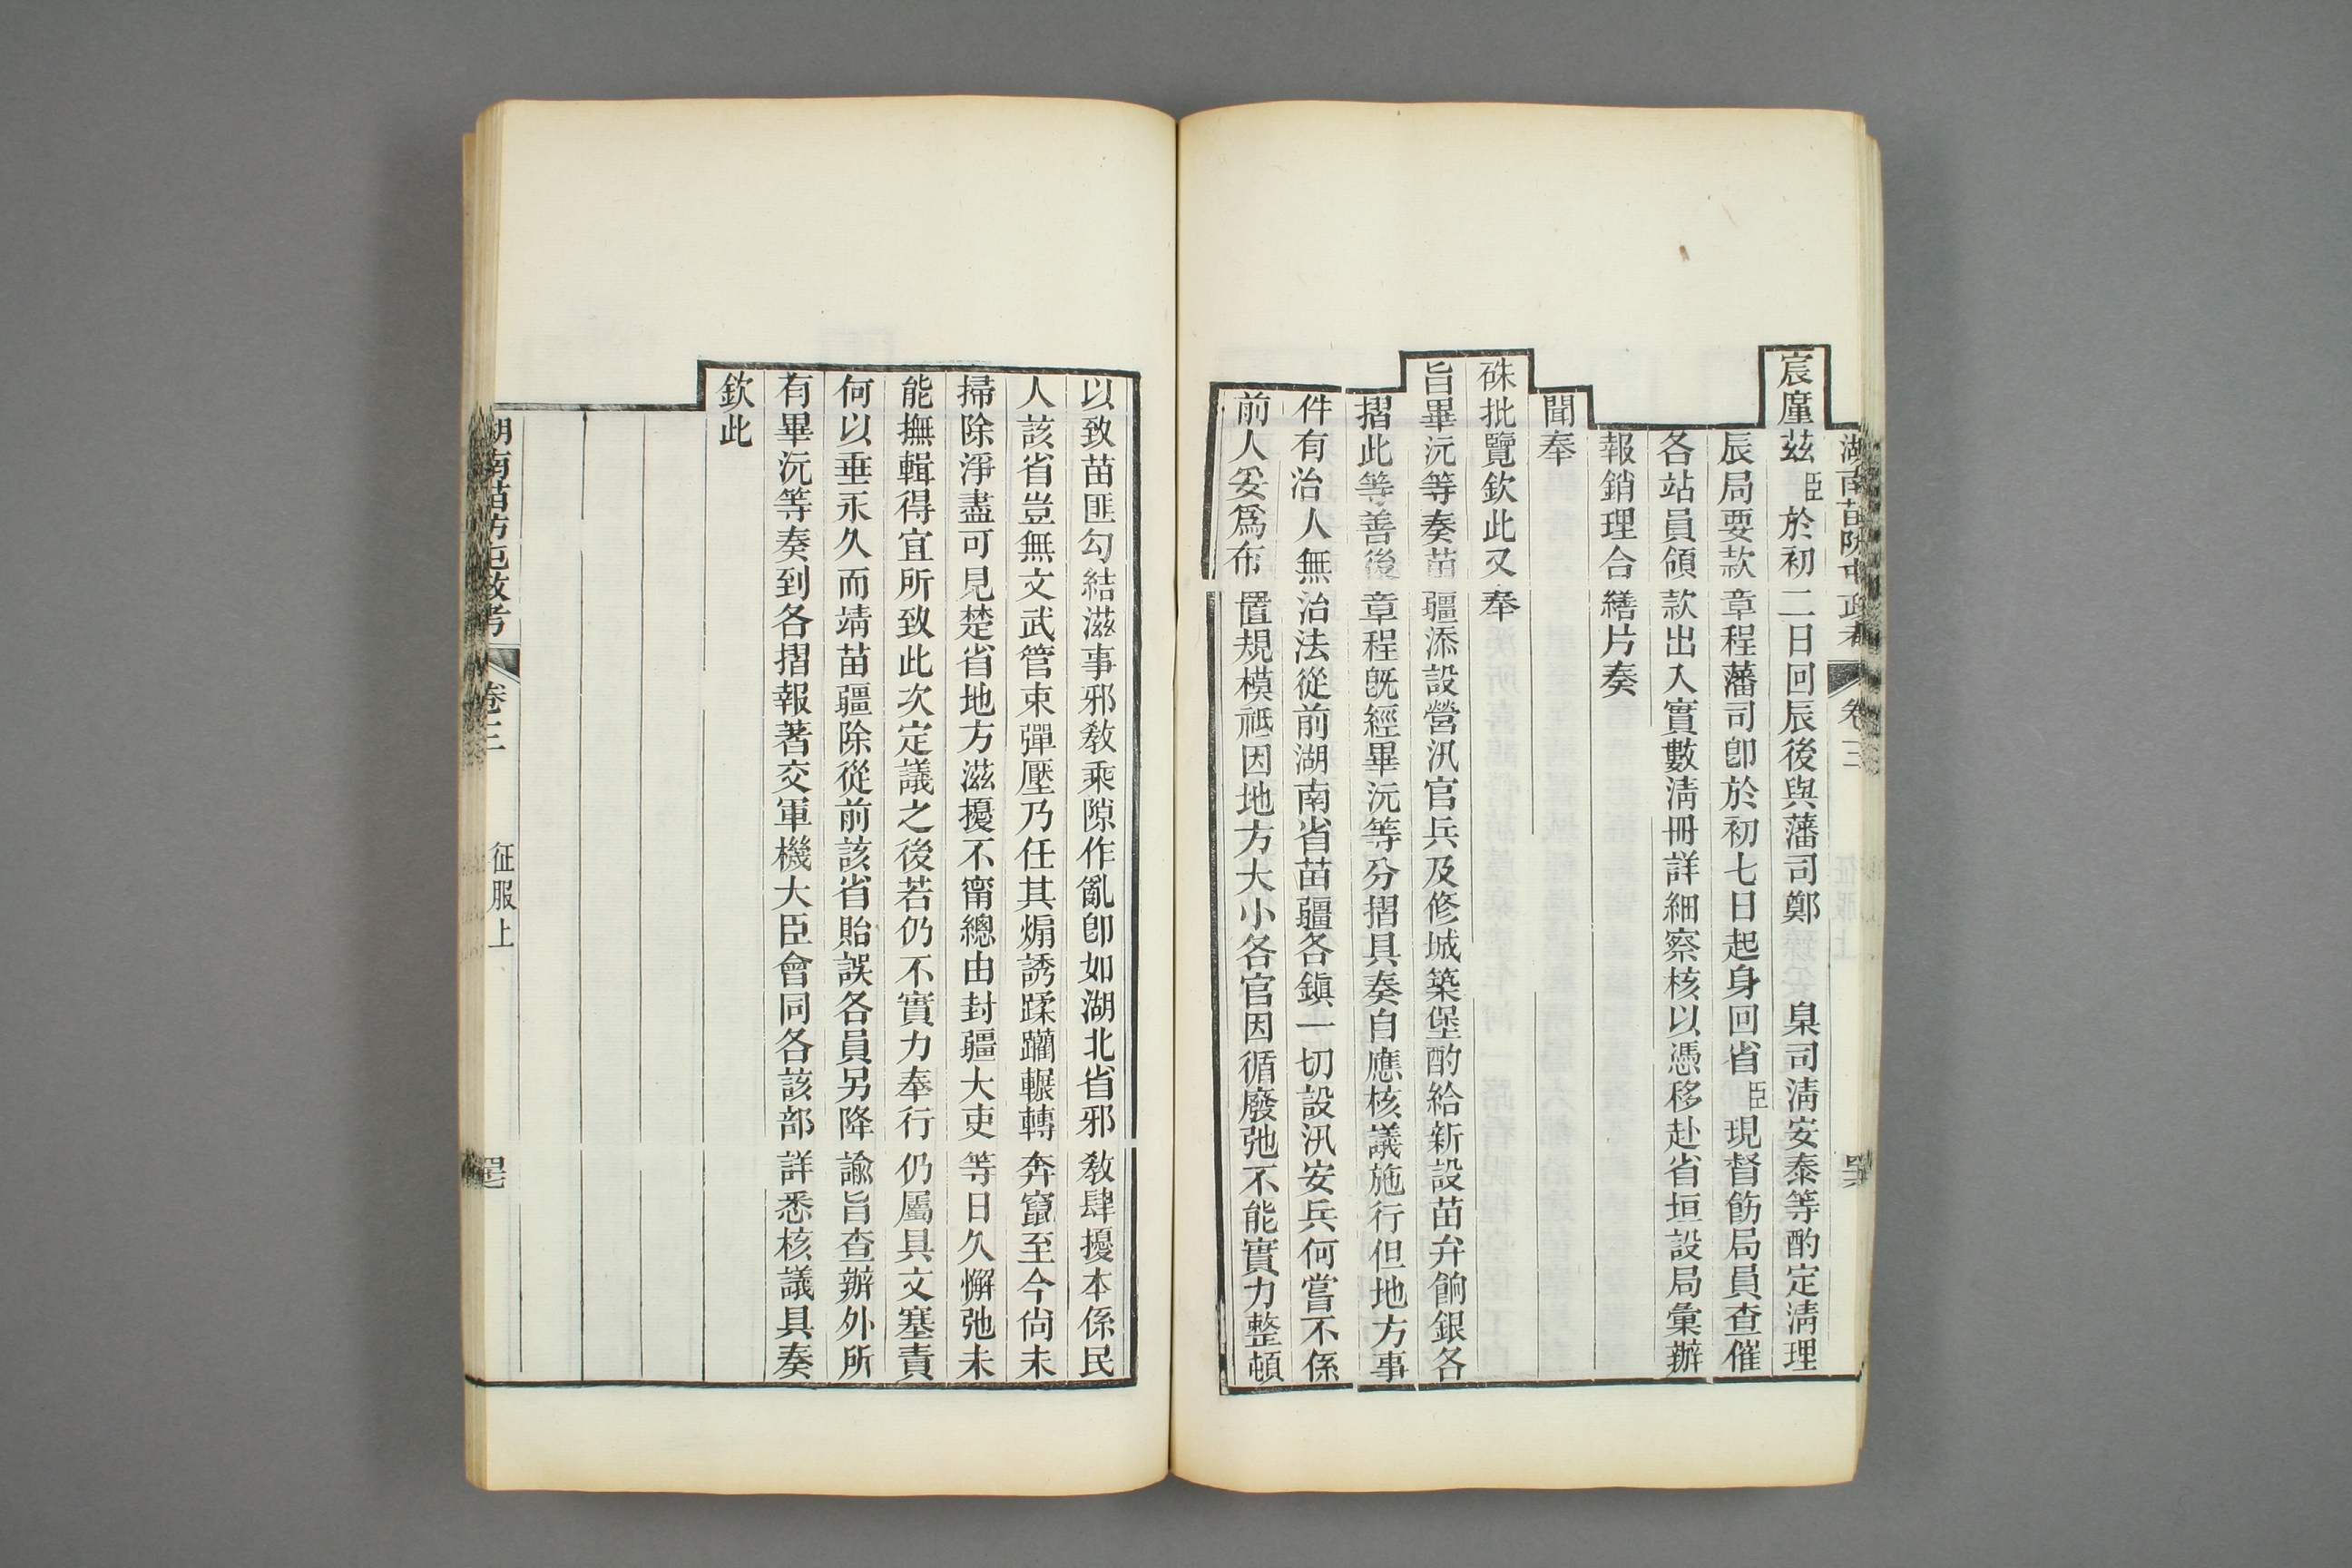 湖南苗防屯政考 卷三
宸廑茲臣於初二日回辰後與藩司鄭 臬司淸安泰等酌定淸理
辰局要款章程藩司卽於初七日起身回省臣現督飭局員查催
各站員領款出入實數淸冊詳細察核以憑移赴省垣設局彙辦
報銷理合繕片奏
聞奉
硃批覽欽此又奉
旨畢沅等奏苗疆添設營汛官兵及修城築堡酌給新設苗弁餉銀各
摺此等善後章程旣經畢沅等分摺具奏自應核議施行但地方事
件有治人無治法從前湖南省苗疆各鎭一切設汛安兵何嘗不係
前人妥爲布置規模祗因地方大小各官因循廢弛不能實力整頓
以致苗匪勾結滋事邪敎乘隙作亂卽如湖北省邪敎肆擾本係民
人該省豈無文武管束彈壓乃任其煽誘蹂躪輾轉奔竄至今尙未
掃除淨盡可見楚省地方滋擾不甯總由封疆大吏等日久懈弛未
能撫輯得宜所致此次定議之後若仍不實力奉行仍屬具文塞責
何以垂永久而靖苗疆除從前該省貽誤各員另降諭旨查辦外所
有畢沅等奏到各摺報著交軍機大臣會同各該部詳悉核議具奏
欽此
湖南苗防屯政考 卷三 征服上